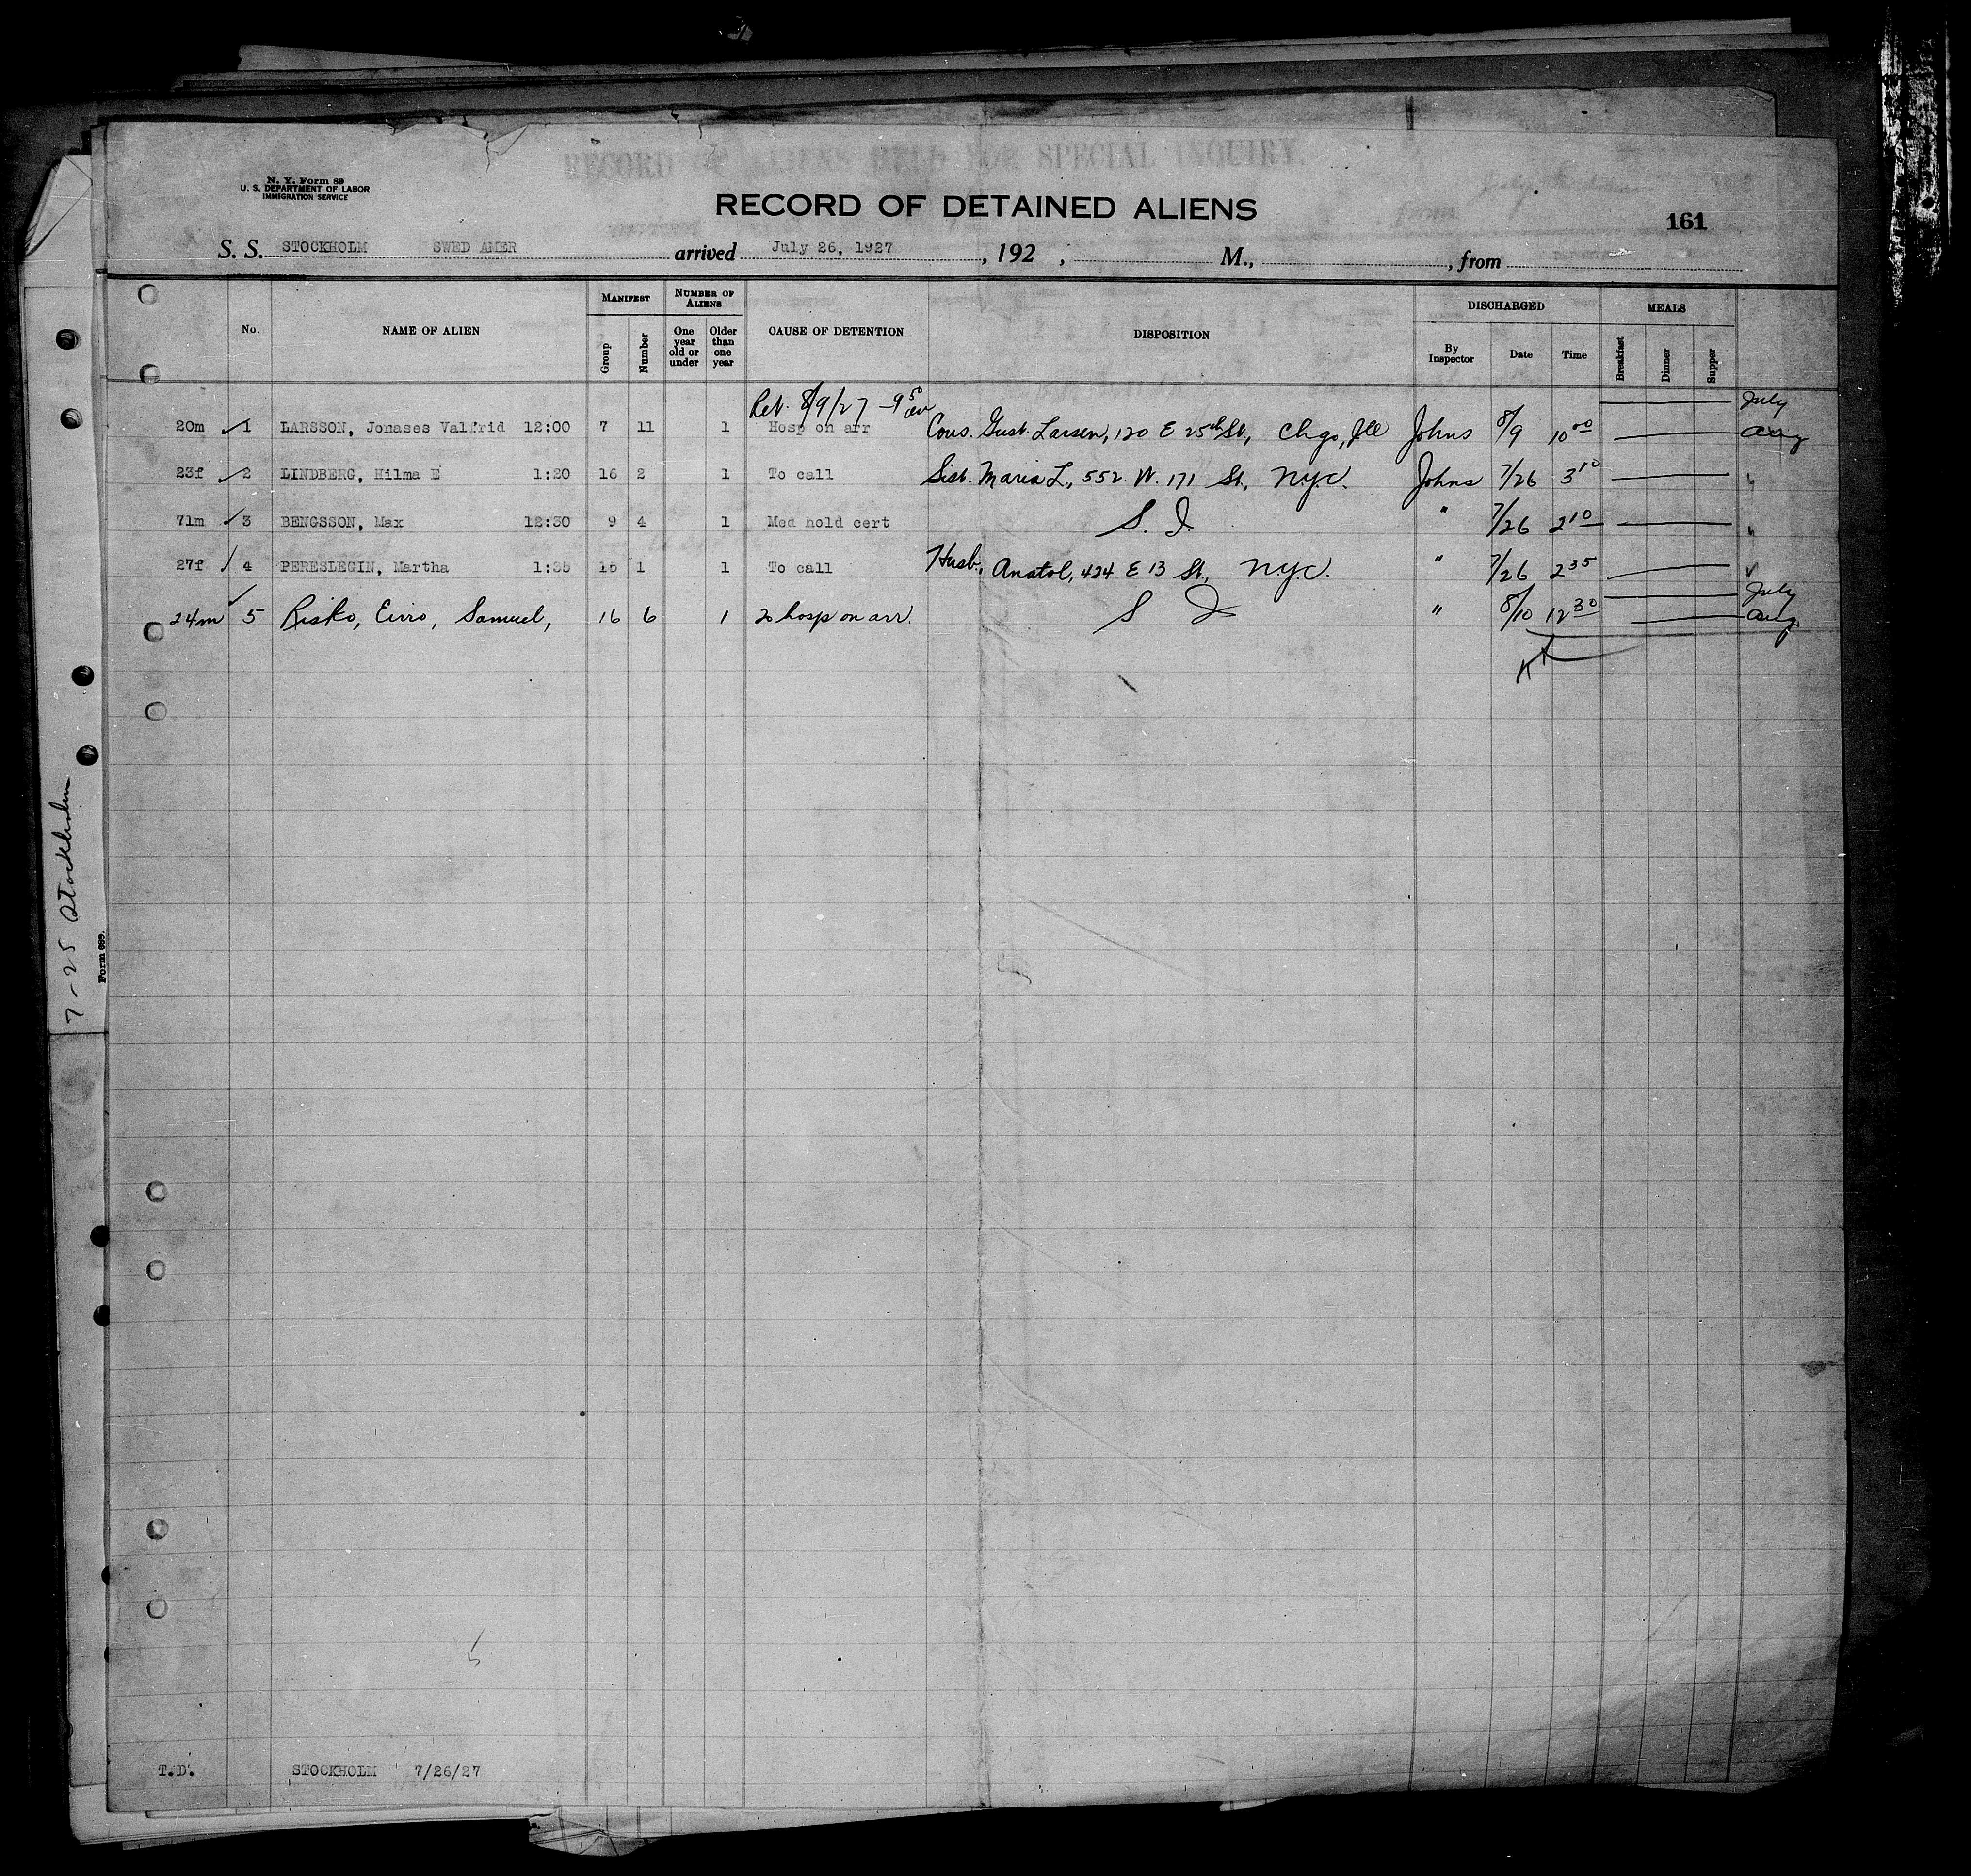 RECORD OF ALIENS HELD FOR SPECIAL INQUIRY.
N. Y. Form 89
U. S. DEPARTMENT OF LABOR
IMMIGRATION SERVICE
RECORD OF DETAINED ALIENS
161
S. S. STOCKHOLM SWED AMER arrived July 26, 1927, 192 , M., , from
No. NAME OF ALIEN MANIFEST Group Number NUMBER OF ALIENS One year old or under Older than one year CAUSE OF DETENTION DISPOSITION DISCHARGED By Inspector Date Time MEALS Breakfast Dinner Supper
Ret. 8/9/27 - 9 July
20m 1 LARSSON, Jonases Valfrid 12:00 7 11 1 Hosp on arr Cous. Gust. Larsen, 120 E 25th St., Chgo, Ill Johns 8/9 10 00 Aug
23f 2 LINDBERG, Hilma E 1:20 16 2 1 To call Sist. Maria L., 552 W. 171 St., N.Y.C. Johns 7/26 3 10 "
71m 3 BENGSSON, Max 12:30 9 4 1 Med hold cert S. I. " 7/26 2 10 "
27f 4 PERESLEGIN, Martha 1:35 15 1 1 To call Husb., Anatol, 424 E 13 St., N.Y.C. " 7/26 2 35
July
24m 5 Risko, Eino, Samuel, 16 6 1 To hosp on arr. S I " 8/10 12 30 Aug
7-25 Stockholm
Form 689.
5
T.D. STOCKHOLM 7/26/27